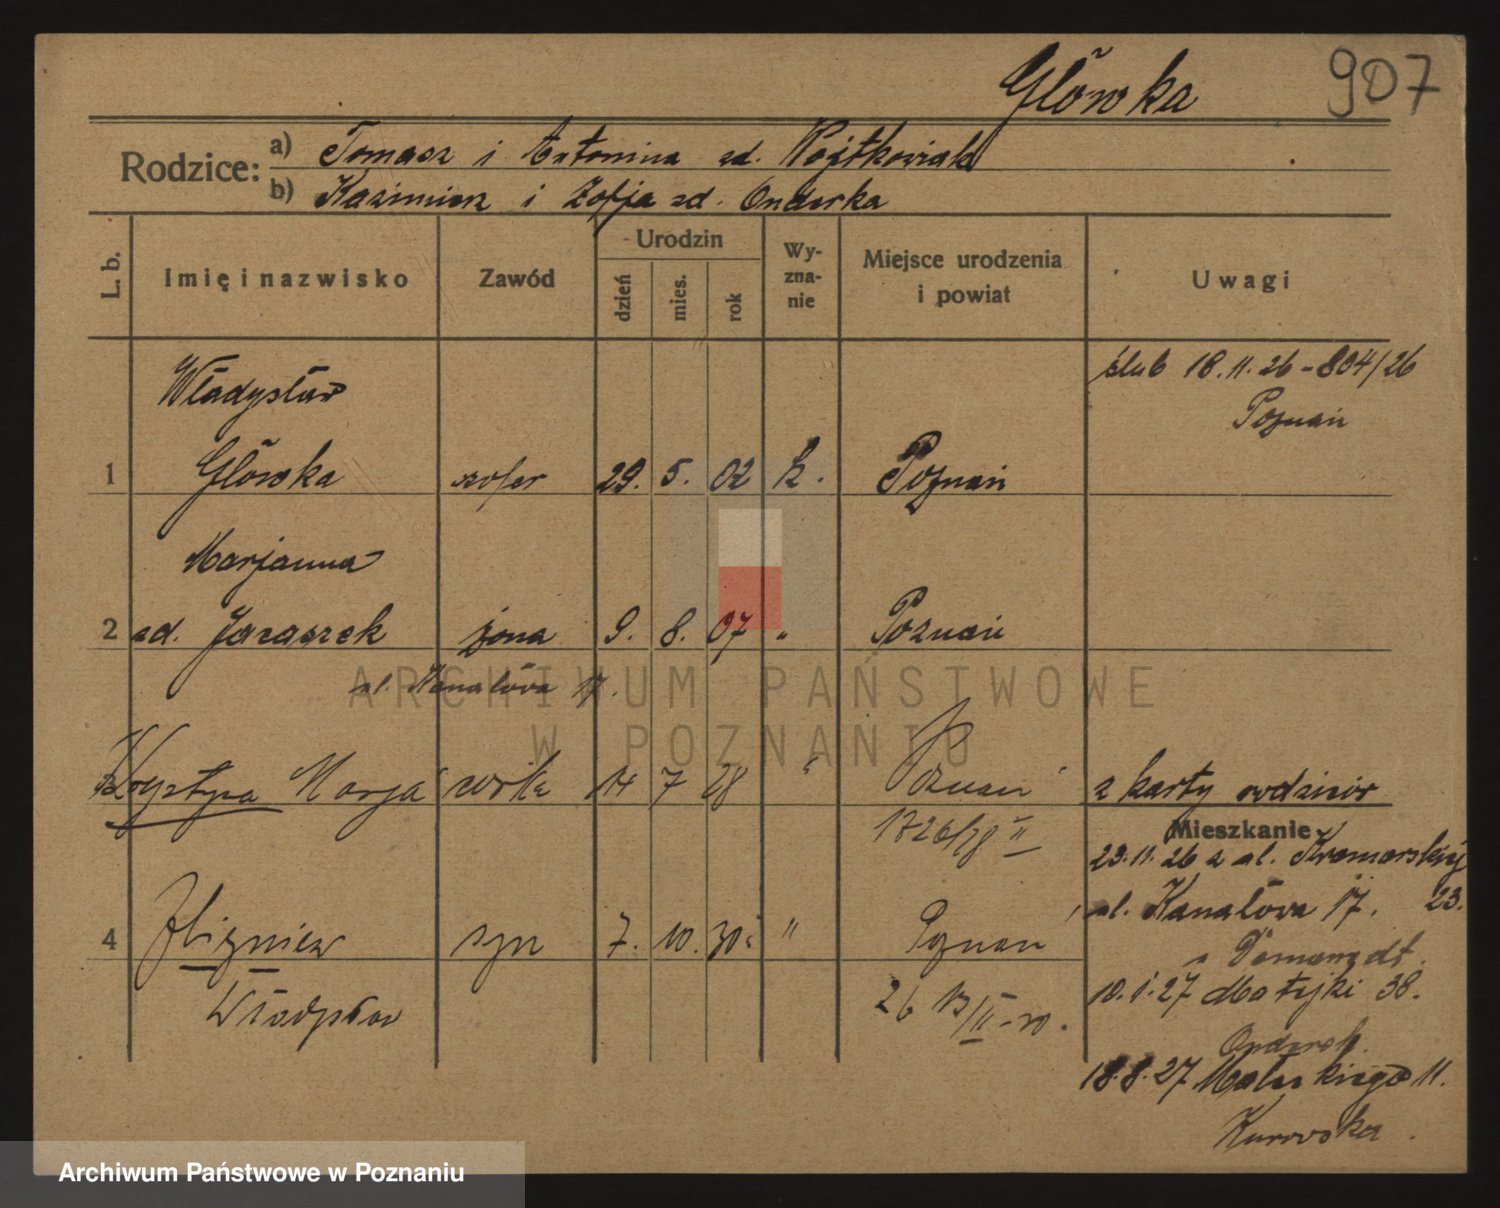 Główka 907
Rodzice: a) Tomasz i Antonina zd. Wojtkowiak
b) Kazimierz i Zofja zd. Onderka
L. b. Imię i nazwisko Zawód Urodzin dzień mies. rok Wyzna-nie Miejsce urodzenia i powiat Uwagi
Władysław ślub 18.11.26-804/26
Poznań
1 Główka szofer 29. 5. 02 k. Poznań
Marjanna
2 zd. Jaraszek żona 9. 8. 07 " Poznań
ul. Kanałowa 17.
Krystyna Marja córka 14 7 28 " Poznań z karty rodziców
1726/28 II
Mieszkanie
23.11.26 z ul.
ul. Kanałowa 17. 23.
4 Zbigniew syn 7. 10. 30 " Poznań
Władysław
10.1.27 Matejki 38.
18.8.27 11.
Kurowska
ARCHIWUM PAŃSTWOWE
W POZNANIU
Archiwum Państwowe w Poznaniu